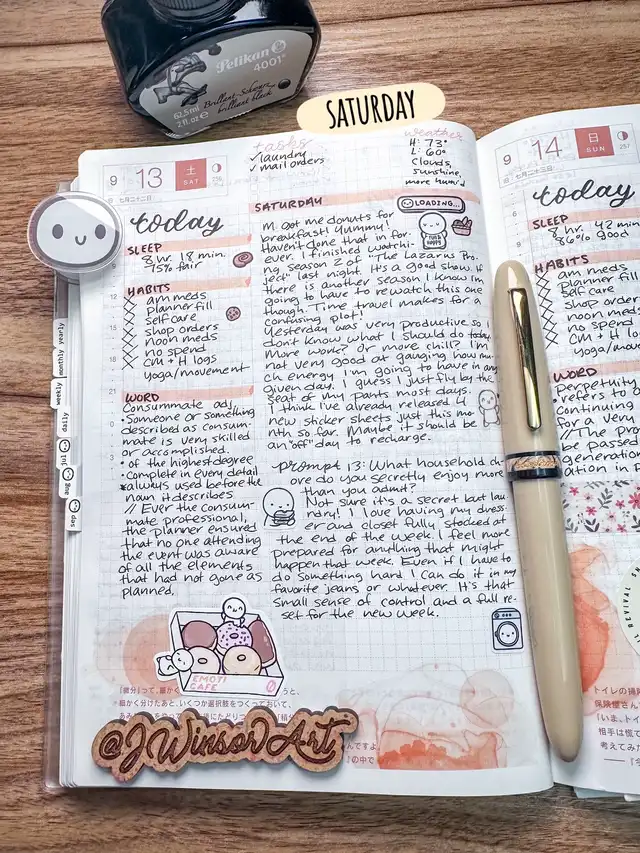 Pelikan
4001
Brillant-Schwarz
brilliant black
62,5ml
2 fl.oz
SATURDAY
tasks
✓laundry
✓mail orders
weather
H: 73°
L: 60°
clouds,
sunshine,
more humid
9 13 土 SAT
today
SLEEP
8 hr. 18 min.
75% fair
HABITS
am meds
planner fill
self care
shop orders
noon meds
no spend
cm + H logs
yoga/movement
WORD
Consummate adj.
• Someone or something
described as consum-
mate is very skilled
or accomplished.
• of the highest degree
• Complete in every detail
*always used before the
noun it describes
// Ever the consum-
mate professional,
the planner ensured
that no one attending
the event was aware
of all the elements
that had not gone as
planned.
SATURDAY
LOADING...
M. got me donuts for
breakfast! Yummy!
Haven't done that in for-
ever. I finished watchi-
ng season 2 of "The Lazarus Pro-
ject" last night. It's a good show. If
there is another season I know I'm
going to have to rewatch this one
though. Time travel makes for a
confusing plot!
Yesterday was very productive so I
don't know what I should do today.
More work? Or more chill? I'm
not very good at gauging how mu-
ch energy I'm going to have in any
given day. I guess I just fly by the
seat of my pants most days.
I think I've already released 4
new sticker sheets just this mo-
nth so far. Maybe it should be
an "off" day to recharge.
prompt 13: What household ch-
ore do you secretly enjoy more
than you admit?
Not sure it's a secret but lau-
ndry! I love having my dress-
er and closet fully stocked at
the end of the week. I feel more
prepared for anything that might
happen that week. Even if I have to
do something hard I can do it in my
favorite jeans or whatever. It's that
small sense of control and a full re-
set for the new week.
EMOTI
CAFE
@JWinsorArt
monthly
yearly
weekly
daily
jul
aug
sep
9 14 日 SUN
today
SLEEP
8 hr. 42 min
86% good
HABITS
am meds
planner fill
self care
shop order
noon meds
no spend
cm + H log
yoga/mov
WORD
perpetuity
• refers to
continuing
for a very
// The pro
be passed
generation
ation in t
REVIVAL